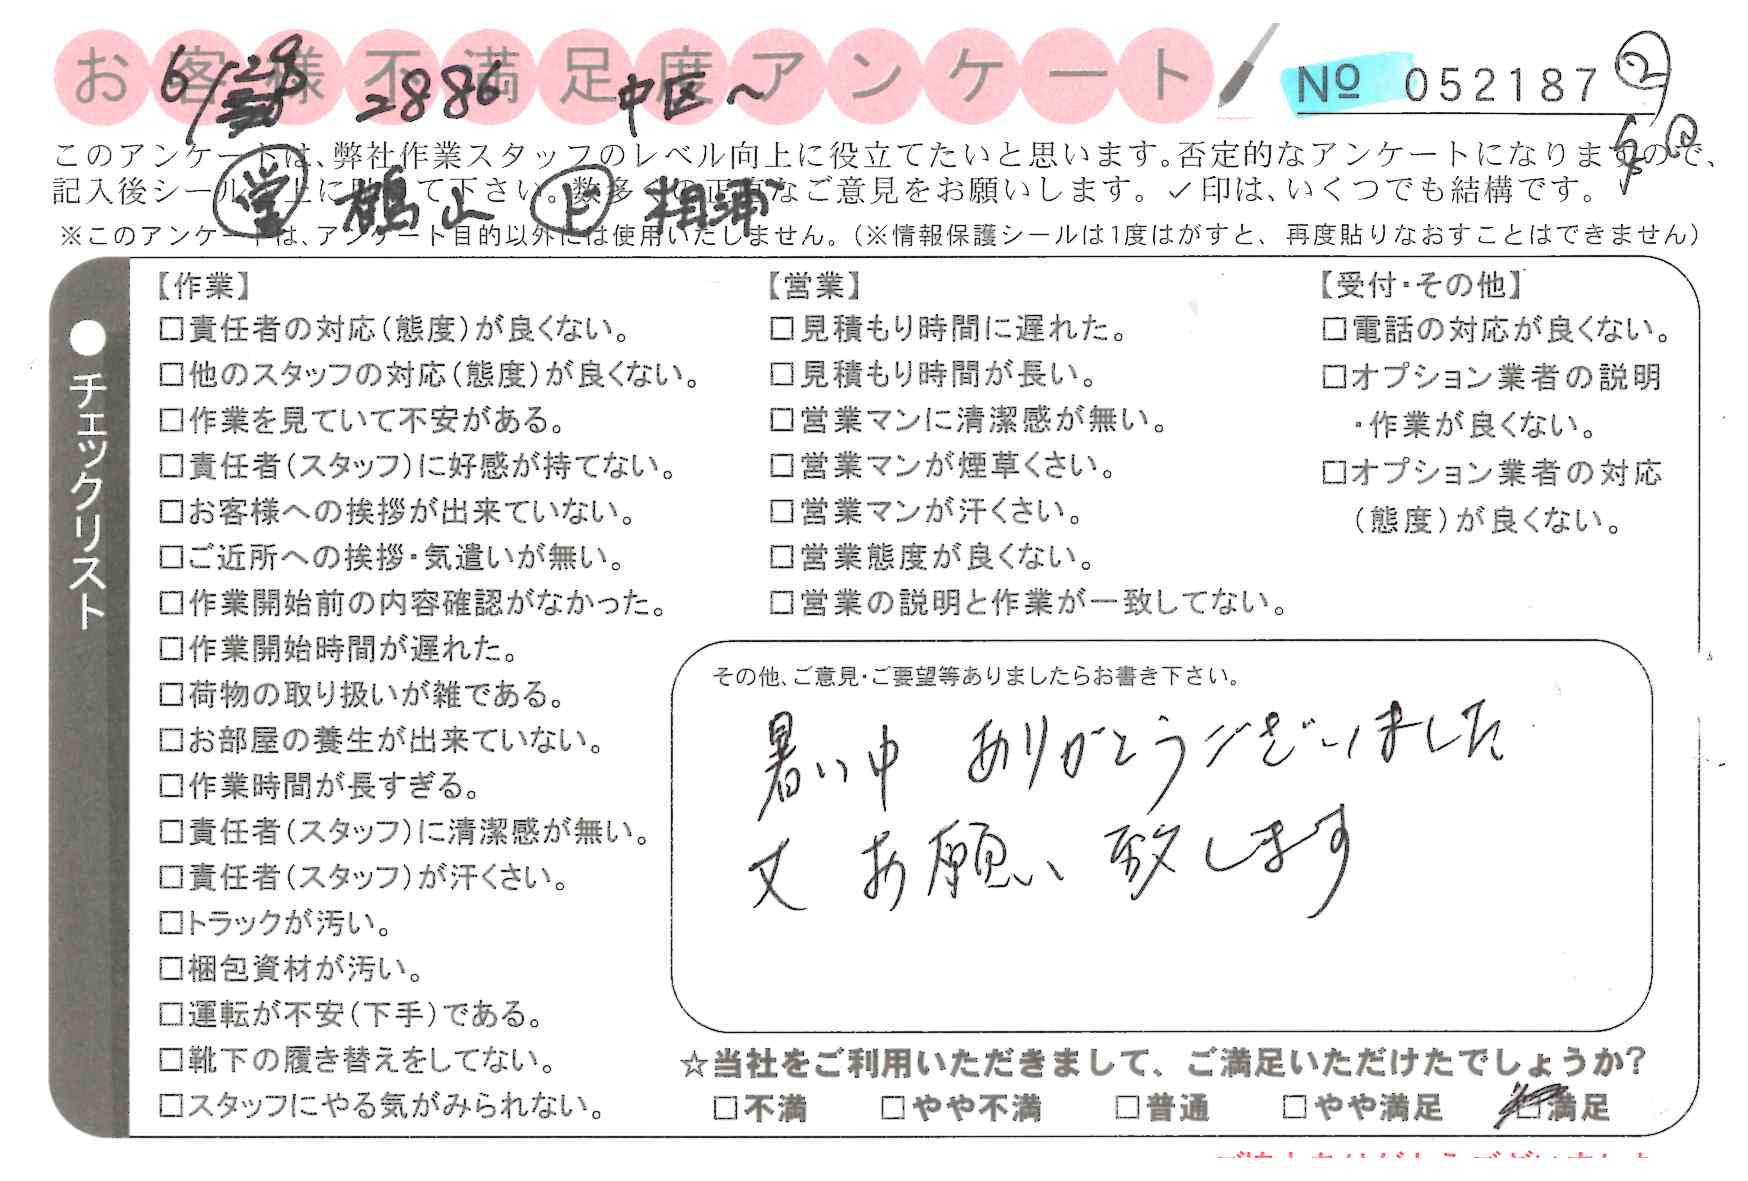 お客様不満足度アンケート
No 052187
6/28 2886 中区~
このアンケートは、弊社作業スタッフのレベル向上に役立てたいと思います。否定的なアンケートになりますので、
記入後シールを上に貼って下さい。数多くの正直なご意見をお願いします。✓印は、いくつでも結構です。
堂 鶴山 上 相浦
※このアンケートは、アンケート目的以外には使用いたしません。(※情報保護シールは1度はがすと、再度貼りなおすことはできません)
●チェックリスト
【作業】
□責任者の対応(態度)が良くない。
□他のスタッフの対応(態度)が良くない。
□作業を見ていて不安がある。
□責任者(スタッフ)に好感が持てない。
□お客様への挨拶が出来ていない。
□ご近所への挨拶・気遣いが無い。
□作業開始前の内容確認がなかった。
□作業開始時間が遅れた。
□荷物の取り扱いが雑である。
□お部屋の養生が出来ていない。
□作業時間が長すぎる。
□責任者(スタッフ)に清潔感が無い。
□責任者(スタッフ)が汗くさい。
□トラックが汚い。
□梱包資材が汚い。
□運転が不安(下手)である。
□靴下の履き替えをしてない。
□スタッフにやる気がみられない。
【営業】
□見積もり時間に遅れた。
□見積もり時間が長い。
□営業マンに清潔感が無い。
□営業マンが煙草くさい。
□営業マンが汗くさい。
□営業態度が良くない。
□営業の説明と作業が一致してない。
【受付・その他】
□電話の対応が良くない。
□オプション業者の説明
・作業が良くない。
□オプション業者の対応
(態度)が良くない。
その他、ご意見・ご要望等ありましたらお書き下さい。
暑い中 ありがとうございました
又 お願い致します
☆当社をご利用いただきまして、ご満足いただけたでしょうか?
□不満 □やや不満 □普通 □やや満足 □満足